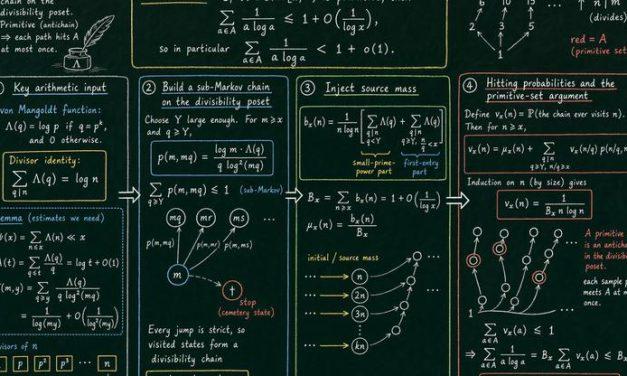 chain on the
divisibility poset.
Primitive (antichain)
⇒ each path hits A
at most once.
Λ
∑_{a∈A} 1/(a log a) ≤ 1 + O(1/log x),
so in particular ∑_{a∈A} 1/(a log a) < 1 + o(1).
6 10 15 ...
2 3 5
1
n | m
(divides)
red = A
(primitive set)
Key arithmetic input
von Mangoldt function:
Λ(q) = log p if q = pᵏ,
and 0 otherwise.
Divisor identity:
∑_{q|n} Λ(q) = log n
(estimates we need)
(x) = ∑_{n≤x} Λ(n) ≪ x
(t) = ∑_{q≤t} Λ(q)/q = log t + O(1)
(m,y) = ∑_{q≥y} Λ(q)/(q log²(mq))
= 1/log(my) + O(1/log²(my))
divisors of n
p p² p³ ... n
② Build a sub-Markov chain
on the divisibility poset
Choose Y large enough. For m ≥ x
and q ≥ Y,
p(m, mq) = (log m · Λ(q))/(q log²(mq))
∑_{q≥Y} p(m, mq) ≤ 1 (sub-Markov)
mq mr ms ...
p(m,mq) p(m,mr) p(m,ms)
m
†
stop
(cemetery state)
Every jump is strict, so
visited states form a
divisibility chain
③ Inject source mass
bₓ(n) = 1/(n log n) [∑_{q|n, q<Y} Λ(q) + ∑_{q|n, q≥Y, n/q<x} Λ(q)]
small-prime-
power part
first-entry
part
Bₓ = ∑_{n≥x} bₓ(n) = 1 + O(1/log x)
μₓ(n) = bₓ(n)/Bₓ
initial / source mass
... n
... 2n
... 3n
... kn
④ Hitting probabilities and the
primitive-set argument
Define vₓ(n) = ℙ(the chain ever visits n).
Then for n ≥ x,
vₓ(n) = μₓ(n) + ∑_{q|n, q≥Y, n/q≥x} vₓ(n/q) p(n/q, n
Induction on n (by size) gives
vₓ(n) = 1/(Bₓ n log n)
A primitive
is an antichain
in the divisibility
poset.
each sample
meets A at most
once.
1
∑_{a∈A} vₓ(a) ≤ 1
⇒ ∑_{a∈A} 1/(a log a) = Bₓ ∑_{a∈A} vₓ(a) ≤